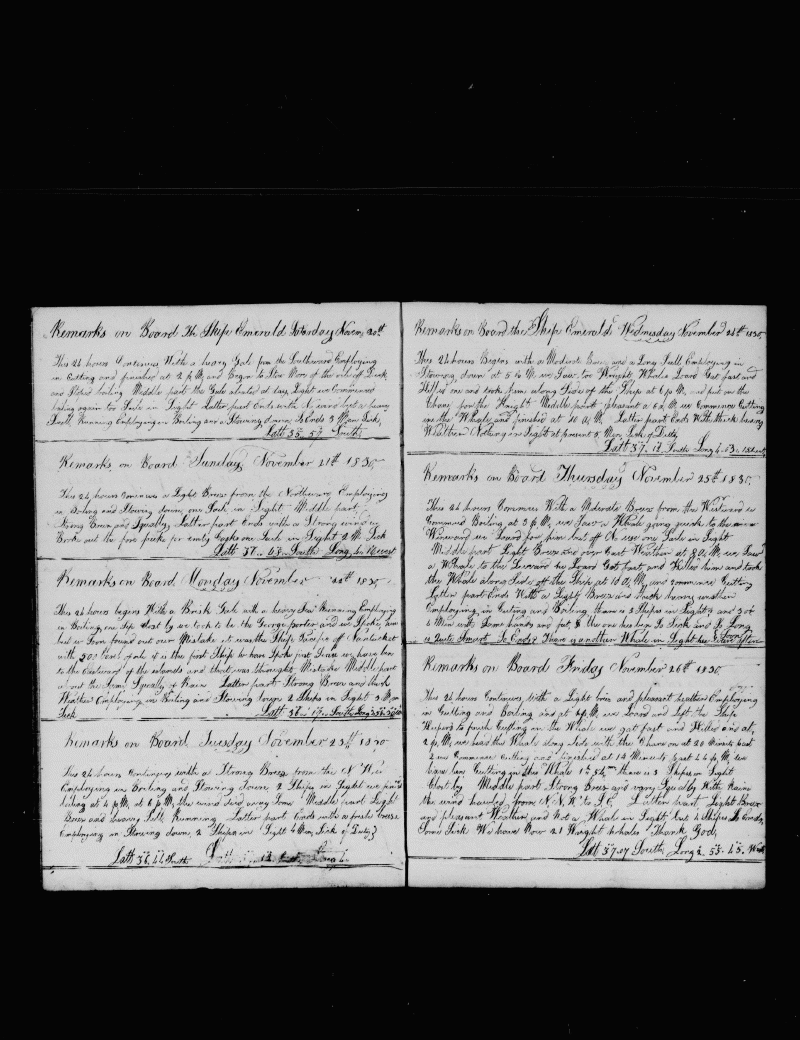 Remarks on Board the Ship Emerald Saturday Novem 20th
This 24 hours Continues With a heavy Gale from the Southward Employing
in Cutting and finished at 2 P M and Began to Stow More of the oil off Deck
and Boiling Middle part the Gale abated at day Light we Commenced
again two Sails in Sight Latter part Ends with N and a heavy
Swell Running Employing in Boiling and Stowing down So Ends 3 Men Sick
Latt 35 South
Remarks on Board Sunday November 21th 1830
This 24 hours a Light Breeze from the Northward Employing
in Boiling and Stowing down one Sail in Sight Middle part
Strong Breeze and Squally Latter part Ends with a Strong wind
Broke out the fore peeke for empty Casks one Sail in Sight 2 M Sick
Latt 37 03 South Long in West
Remarks on Board Monday November 22th 1830
This 24 hours begins With a Brisk Gale with a heavy Sea Running Employing
in Boiling one Ship that by we took to be the George porter and we Spoke him
but we Soon found out our Mistake it was the Ship of Nantucket
with 300 it is the first Ship we have Spoke
to the Eastward of the islands and that was through Mistake Middle part
the Same Squally & Rain Latter part Strong Breeze and thick
Weather Employing in Boiling and Stowing down 2 Ships in Sight 3 Men
Sick Latt 36 17 South Long
Remarks on Board Tuesday November 23th 1830
This 24 hours Continues with a Strong Breeze from the N W
Employing in Boiling and Stowing down 2 Ships in Sight we finished
boiling at 4 P M at 6 P M the wind died away Some Middle part Light
Breeze and heavy Swell Running Latter part Ends with a fresh breeze
Employing in Stowing down 2 Ships in Sight 4 Men Sick off Duty
Latt 36 44 South
Remarks on Board the Ship Emerald Wednesday November 24th 1830
This 24 hours Begins with a Moderate Breeze and a Long Swell Employing in
Stowing down at 5 P M we Saw two Wright Whales Loard Got fast and
Killed one and took him along Side of the Ship at 6 P M and put on the
Chane for the Knight Middle part pleasant at 5 a M we Commence Cutting
in the Whale and finished at 10 A M Latter part Ends With thick heavy
Weather Nothing in Sight at present 5 Men Sick of Duty
Latt 37 12 South Long
Remarks on Board Thursday November 25th 1830
This 24 hours Commences With a Moderate Breeze from the Westward we
Commenced Boiling at 3 P M we Saw a Whale going quick to the
Wineward we Loard for him but off No use one Sail in Sight
Middle part Light Breeze and over Cast Weather at 8 A M we Saw
a Whale to the Leeward we Loard Got fast and Killed him and took
the Whale along Side off the Ship at 10 A M and commence Cutting
Latter part Ends With a Light Breeze and thick heavy weather
Employing in Cutting and Boiling there is 3 Ships in Sight and 3 or
4 Men with Some hands and feet & the one has been So Sick and So Long
is Quite Smart So Ends there is another Whale in Sight
Remarks on Board Friday November 26th 1830
This 24 hours Continues with a Light breeze and pleasant Weather Employing
in Cutting and Boiling and at 6 P M we Loard and Left the Ship
Keepers to finish Cutting in the Whale we got fast and Killed one at
2 P M we had this Whale along Side with the Chane on at 20 Minuts past
2 we Commence Cutting and finished at 14 Minuts past 4 P M we
have been Cutting in this Whale 1h 54m there is 3 Ships in Sight
Close by Middle part Strong Breeze and very Squally With Rain
the wind hauled from N N W to S E Latter part Light Breeze
and pleasant Weather and Not a Whale in Sight but 4 Ships So Ends
Some Sick We have Now 21 Wright Whales Thank God
Latt 37 07 South Long 53 45 West